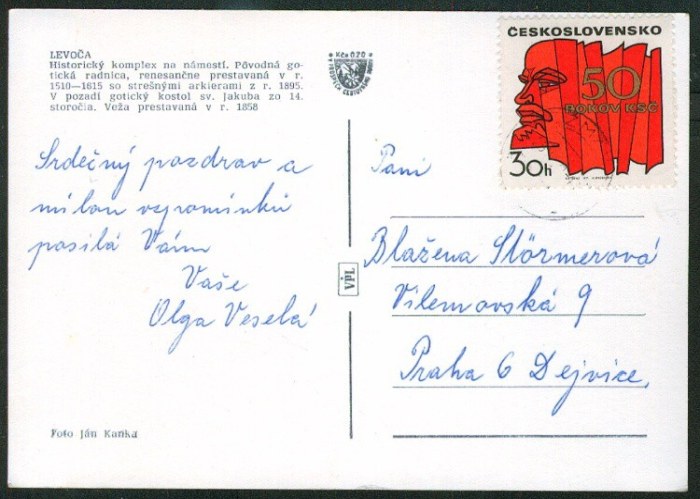 LEVOČA
Historický komplex na námestí. Pôvodná go-
tická radnica, renesančne prestavaná v r.
1510—1615 so strešnými arkierami z r. 1895.
V pozadí gotický kostol sv. Jakuba zo 14.
storočia. Veža prestavaná v r. 1858
Kčs 0,70
Srdečný pozdrav a
milou vzpomínku
posílá Vám
Vaše
Olga Veselá
Foto Ján Kanka
VPL
ČESKOSLOVENSKO
50
ROKOV KSČ
30h
Paní
Blažena Störmerová
Vilemovská 9
Praha 6 Dejvice,